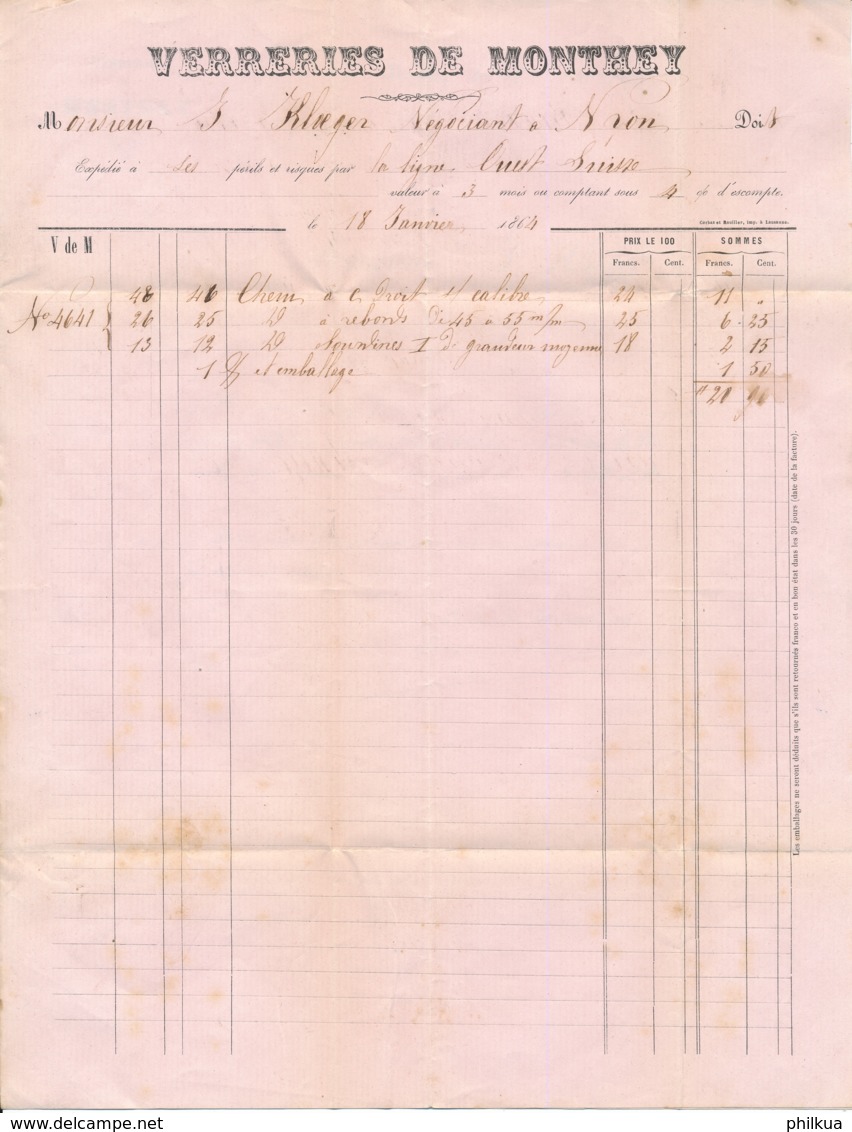 VERRERIES DE MONTHEY
Monsieur J Klæger Négociant à Nyon Doit
Expédié à ses périls et risques par la ligne Ouest Suisse
valeur à 3 mois ou comptant sous 4 % d'escompte.
le 18 Janvier 1864
Corbaz et Rouiller, imp. à Lausanne.
V de M PRIX LE 100 SOMMES
Francs. Cent. Francs. Cent.
48 46 Chem à c Droit s/ calibre 24 11 "
No 4641 26 25 D à rebords De 45 à 55 m/m 25 6 25
13 12 D I De grandeur moyenne 18 2 15
1 et emballage 1 50
" 20 90
Les emballages ne seront déduits que s'ils sont retournés franco et en bon état dans les 30 jours (date de la facture).
www.delcampe.net philkua